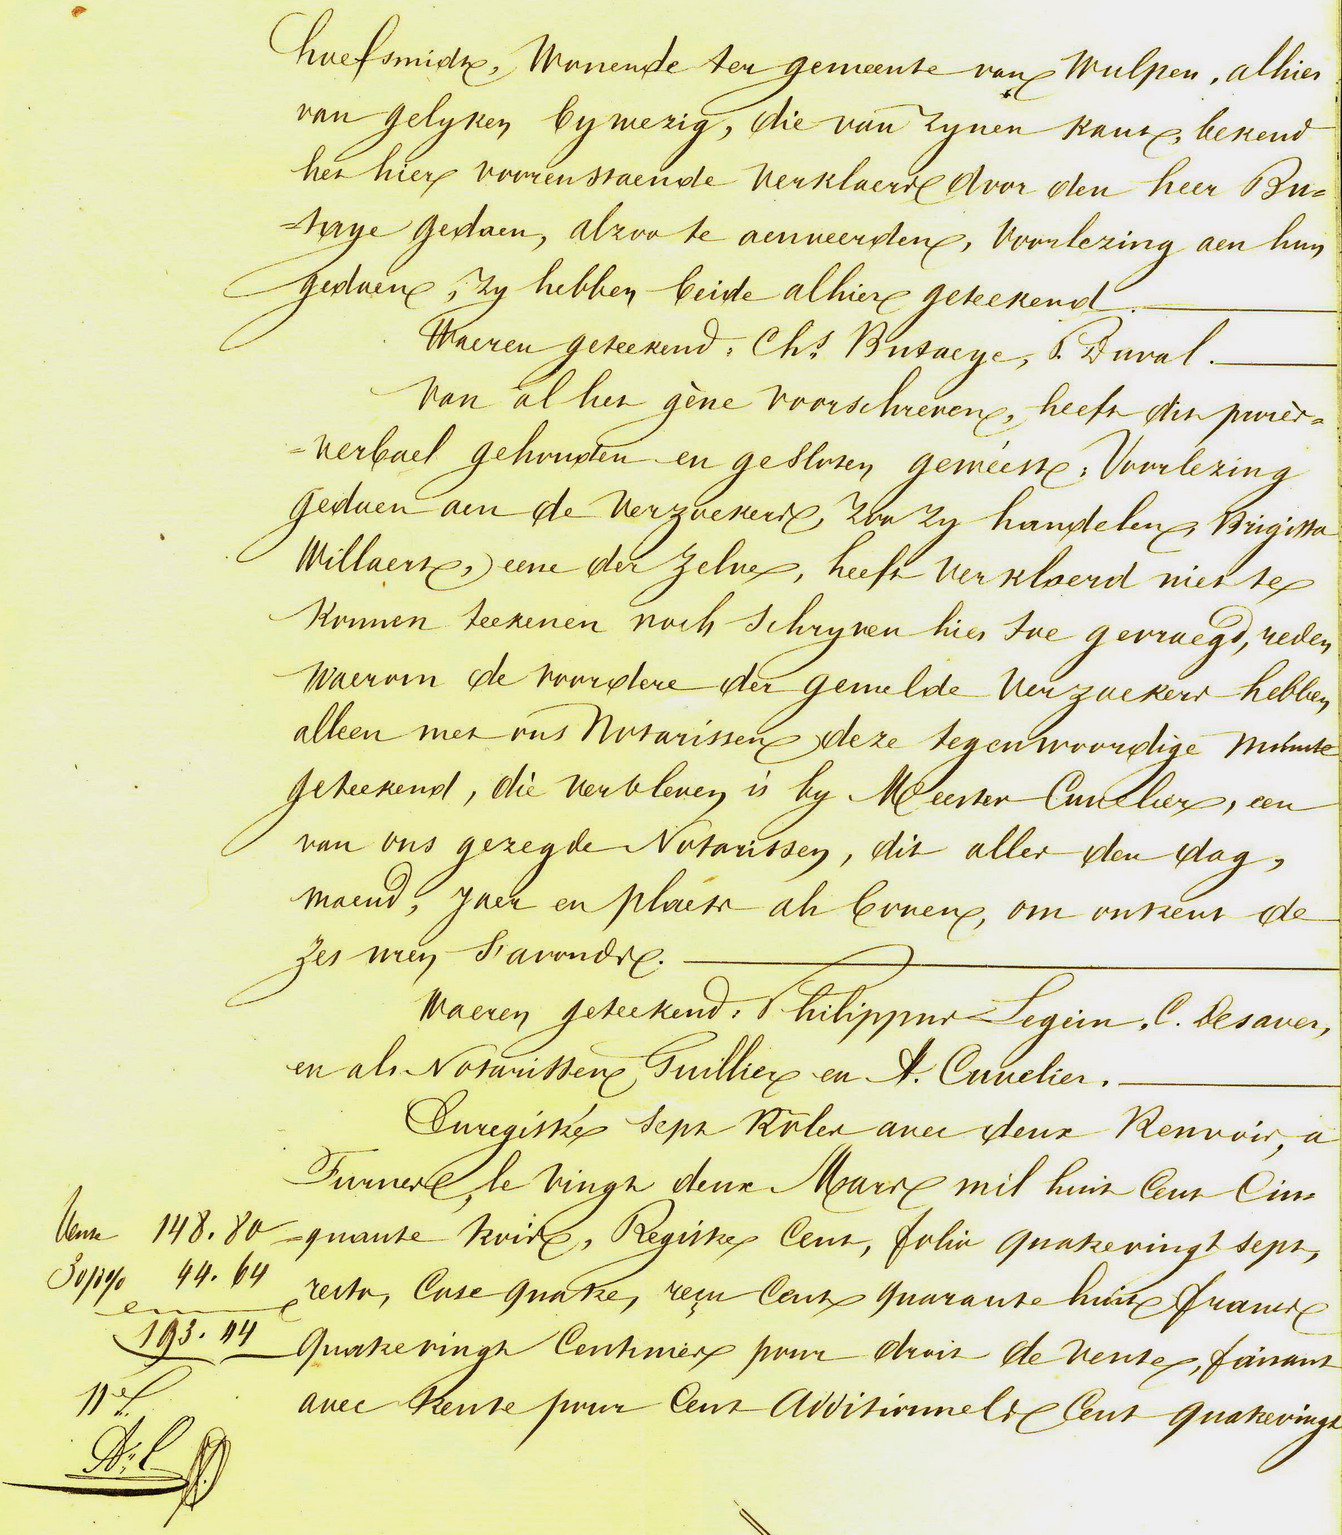 hoefsmidt, Wonende ter gemeente van Wulpen, alhier
van gelyken bywezig, die van zynen kant, bekend
het hier voorenstaende verklaers door den heer Bu=
=taye gedaen, alzoo te aenveerden, Voorlezing aen hun
gedaen, zy hebben beide alhier geteekend.
Waeren geteekend: Chs. Butaeye, P. Duval.
Van al het gène voorschreven, heeft dit procès=
=verbael gehouden en gesloten gewéest, Voorlezing
gedaen aen de verzoekers, zoo zy handelen, Brigitta
Willaert, eene der zelve, heeft verklaerd niet te
konnen teekenen noch schryven hier toe gevraegd, reden
Waerom de voordere der gemelde Verzoekers hebben
alleen met ons Notarissen deze tegenwoordige minute
geteekend, die verbleven is by Meester Cuvelier, een
van ons gezegde Notarissen, dit alles den dag,
maend, jaer en plaets als boven, om ontrent de
zes uren s'avonds.
Waeren geteekend: Philippus Legein, C. Desaver,
en als Notarissen Guillier en A. Cuvelier.
Enregistré sept Rôles avec deux Renvois, à
Furnes, le vingt deux Mars mil huit Cent Cin=
=quante trois, Registre Cent, folio quatrevingt sept,
recto, Case quatre, reçu Cent quarante huit francs
quatrevingt Centimes pour droit de vente, faisant
avec trente pour Cent Additionnels Cent quatrevingt
Vente 148.80
30 p% 44.64
193.44